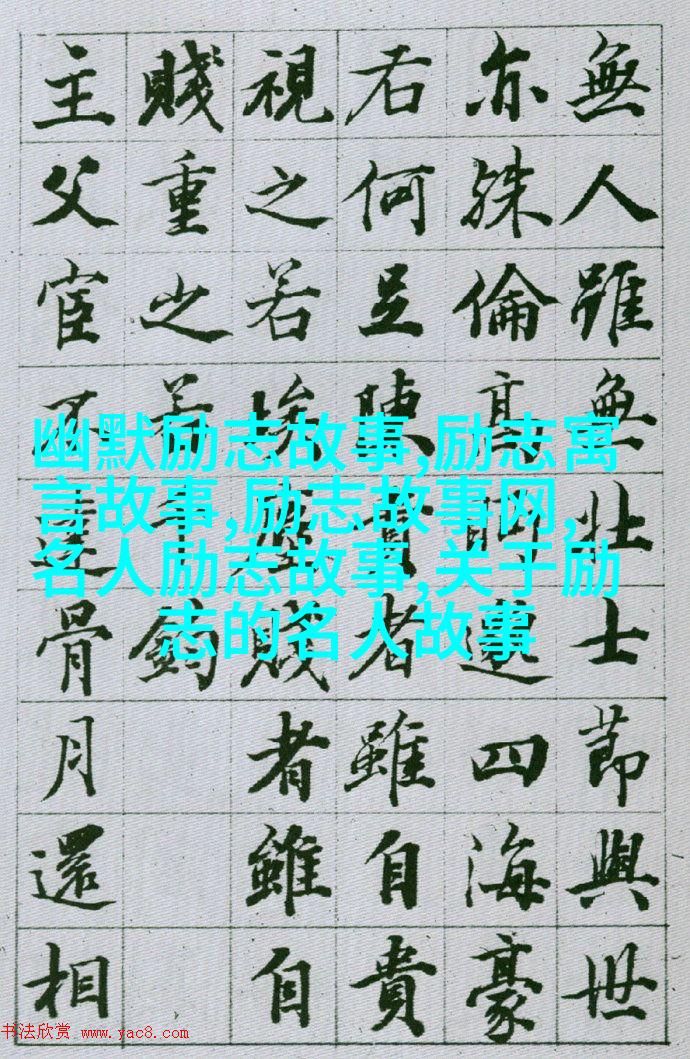 無人雖無壯士節與世
亦殊倫高眄邈四海豪
右何足陳貴者雖自貴
視之若埃塵賤者雖自
賤重之若千鈞
主父宦不達骨月還相
幽默励志故事,励志寓
言故事,励志故事网,
名人励志故事,关于励
志的名人故事
书法欣赏 www.yac8.com